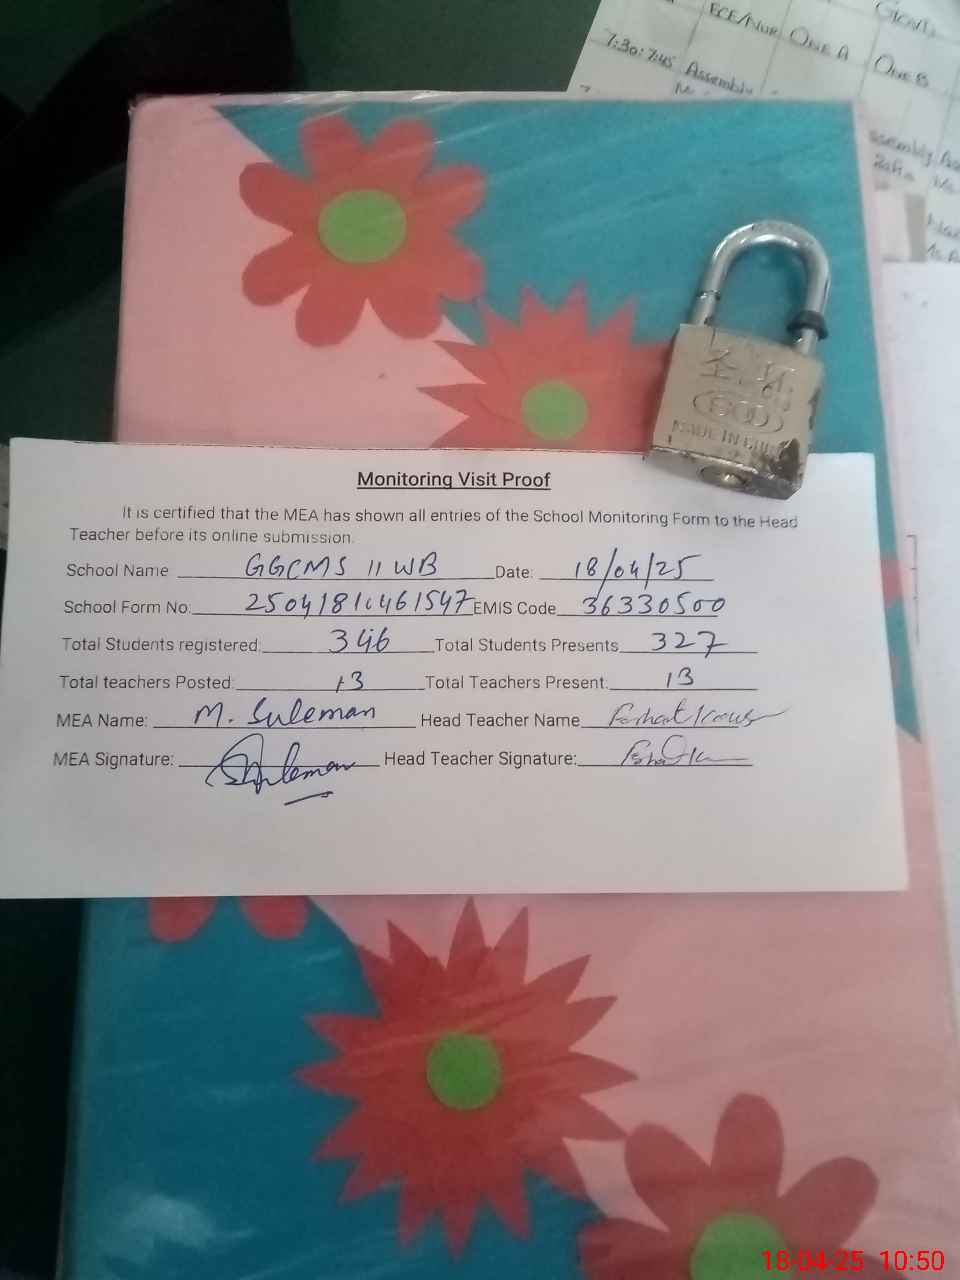 GRCW
ECE/NUR ONE A ONE B
7:30:7:45 Assembly
ssembly
圣 环
MADE IN CHINA
Monitoring Visit Proof
It is certified that the MEA has shown all entries of the School Monitoring Form to the Head
Teacher before its online submission.
School Name GGCMS 11 WB Date: 18/04/25
School Form No: EMIS Code 36330500
Total Students registered: 346 Total Students Presents 327
Total teachers Posted: 13 Total Teachers Present: 13
MEA Name: M. Suleman Head Teacher Name Farhat Kausar
MEA Signature: Suleman Head Teacher Signature:
18-04-25 10:50